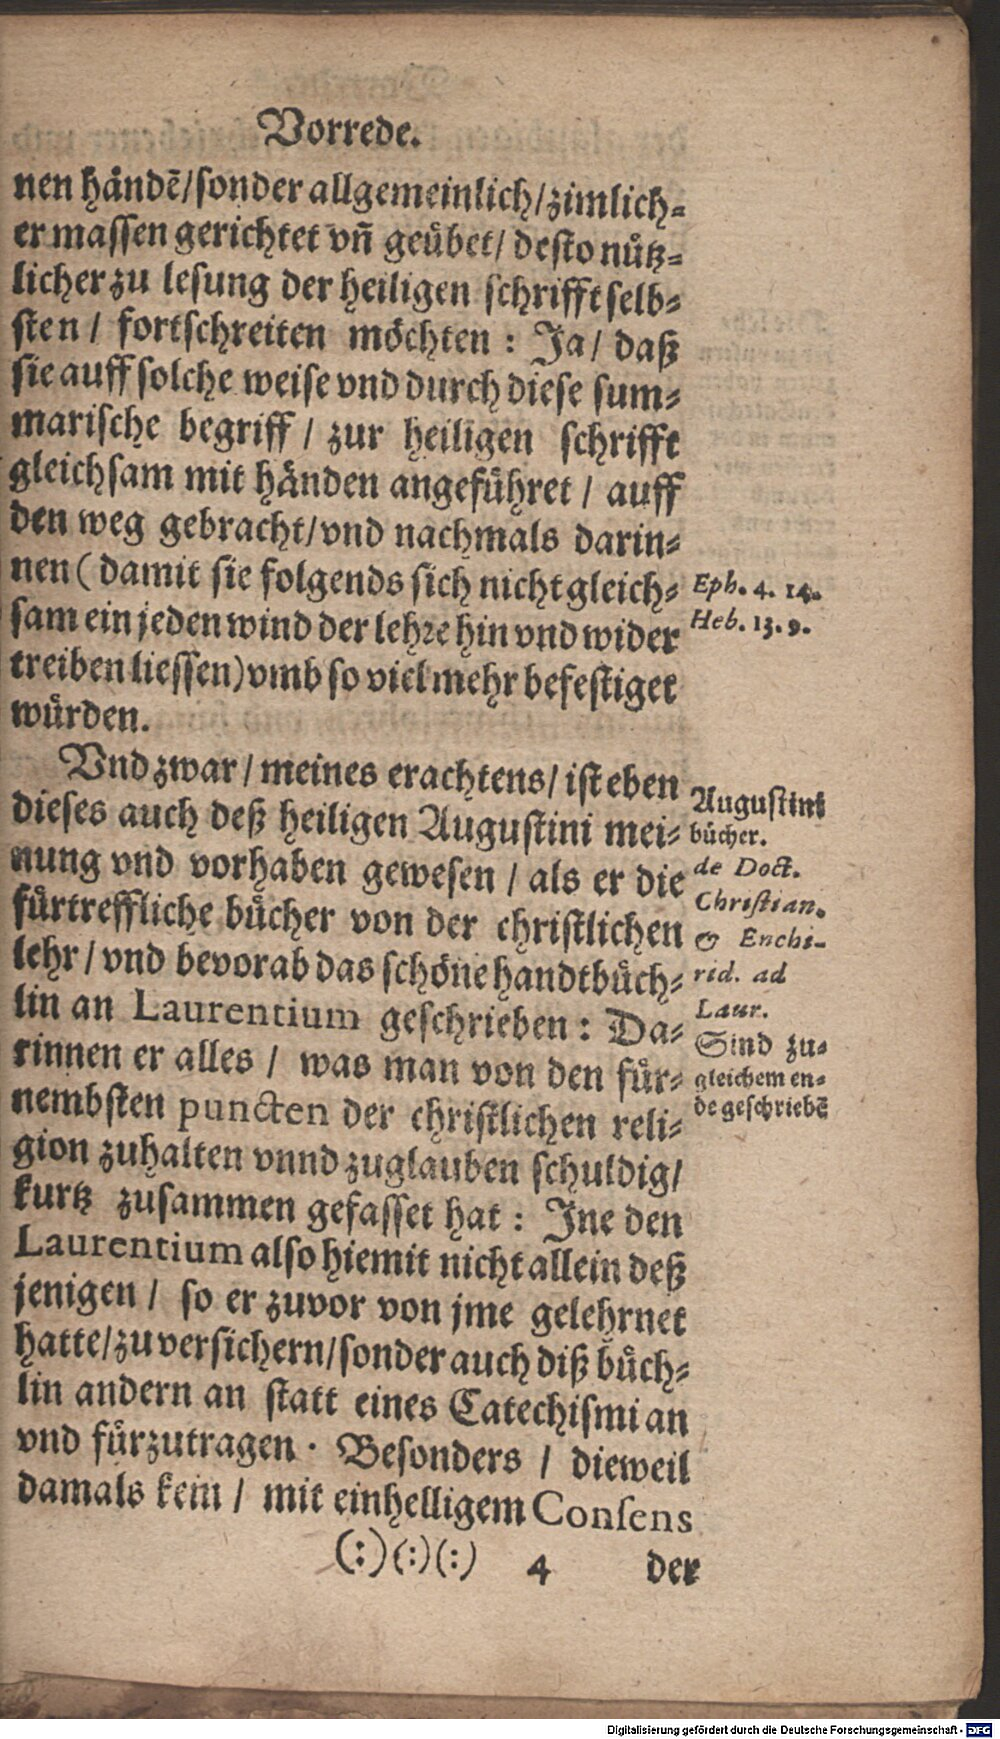 Vorrede.
nen händẽ/sonder allgemeinlich/zimlich-
er massen gerichtet vñ geübet/ desto nütz-
licher zu lesung der heiligen schrifft selb-
sten / fortschreiten möchten : Ja/ daß
sie auff solche weise vnd durch diese sum-
marische begriff / zur heiligen schrifft
gleichsam mit händen angeführet / auff
den weg gebracht/vnd nachmals darin-
nen (damit sie folgends sich nicht gleich-
sam ein jeden wind der lehre hin vnd wider
treiben liessen) vmb so viel mehr befestiget
würden.
Eph. 4. 14.
Heb. 13. 9.
Vnd zwar / meines erachtens/ ist eben
dieses auch deß heiligen Augustini mei-
nung vnd vorhaben gewesen / als er die
fürtreffliche bücher von der christlichen
lehr / vnd bevorab das schöne handtbüch-
lin an Laurentium geschrieben : Da-
rinnen er alles / was man von den für-
nembsten puncten der christlichen reli-
gion zuhalten vnnd zuglauben schuldig/
kurtz zusammen gefasset hat : Jne den
Laurentium also hiemit nicht allein deß
jenigen / so er zuvor von jme gelehrnet
hatte/zu versichern/sonder auch diß büch-
lin andern an statt eines Catechismi an
vnd fürzutragen . Besonders / dieweil
damals kein / mit einhelligem Consens
Augustini
bücher.
de Doct.
Christian.
& Enchi-
rid. ad
Laur.
Sind zu-
gleichem en-
de geschriebẽ
(:)(:)(:) 4 der
Digitalisierung gefördert durch die Deutsche Forschungsgemeinschaft - DFG